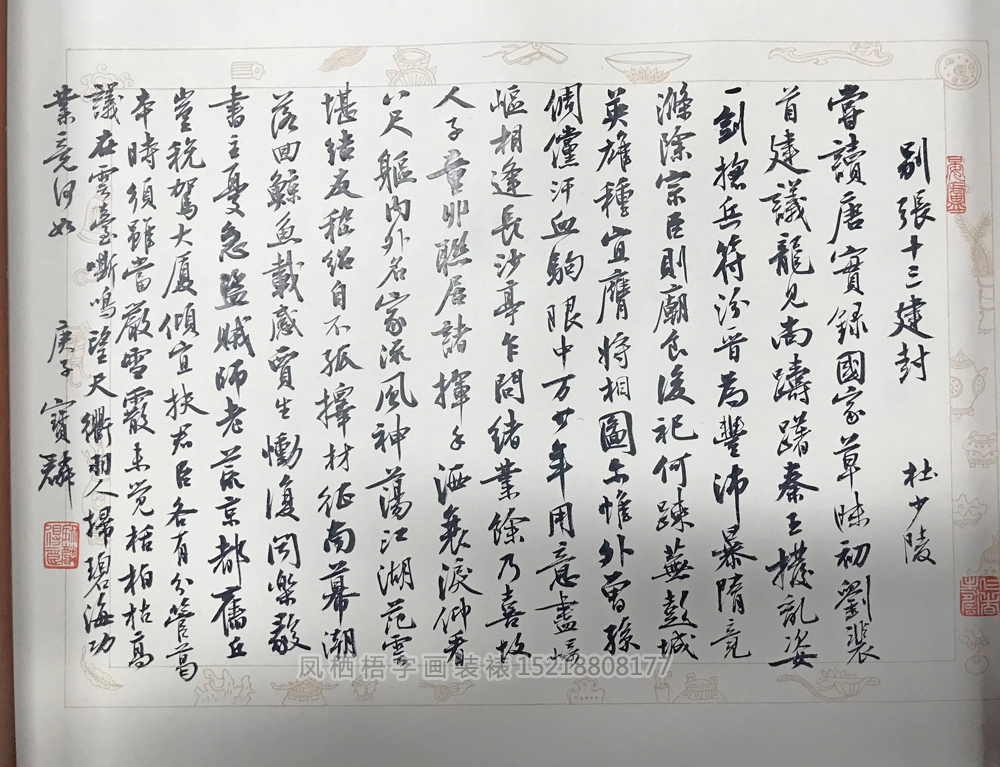 別張十三建封 杜少陵
嘗讀唐實録國家草昧初劉裴
首建議龍見尚躊躇秦王撥亂姿
一劍撫兵符汾晉為豐沛暴隋竟
滌除宗臣則廟食後祀何踈蕪彭城
英雄種宜膺將相圖尔惟外曾孫
倜儻汗血駒眼中万少年用意盡崎
嶇相逢長沙亭乍問緒業餘乃喜故
人子童丱聯居諸揮手洒衰淚仰看
八尺軀内外名家流風神蕩江湖范雲
堪結友嵇紹自不孤擇材征南幕潮
落回鯨魚載感賈生慟復聞樂毅
書主憂急盜賊師老荒京都舊丘
豈税駕大厦傾宜扶君臣各有分管葛
本時須雖當嚴雪霰未覺栝柏枯高
議在雲臺嘶鳴望天衢羽人掃碧海功
業竟何如 庚子 寶麟
凤栖梧字画装裱 15218808177